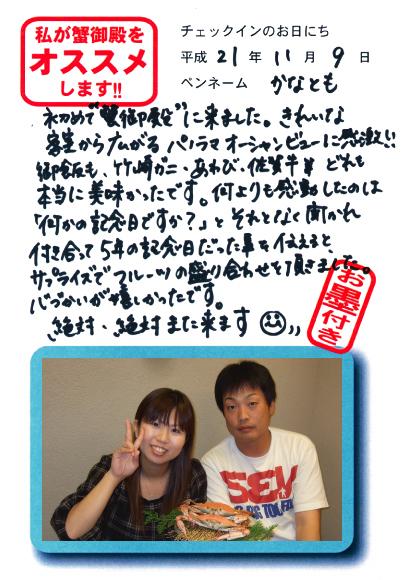 私が蟹御殿を
オススメ
します!!
チェックインのお日にち
平成 21 年 11 月 9 日
ペンネーム かなとも
初めて"蟹御殿"に来ました。きれいな
客室から広がるパノラマオーシャンビューに感激!!
御飯も、竹崎ガニ・あわび・佐賀牛 どれも
本当に美味かったです。何よりも感動したのは
「何かの記念日ですか?」と それとなく聞かれ
付き合って5年の記念日だった事を伝えると、
サプライズでフルーツの盛り合わせを頂きました。
心づかいが嬉しかったです。
絶対、絶対また来ます
お墨付き
SEM